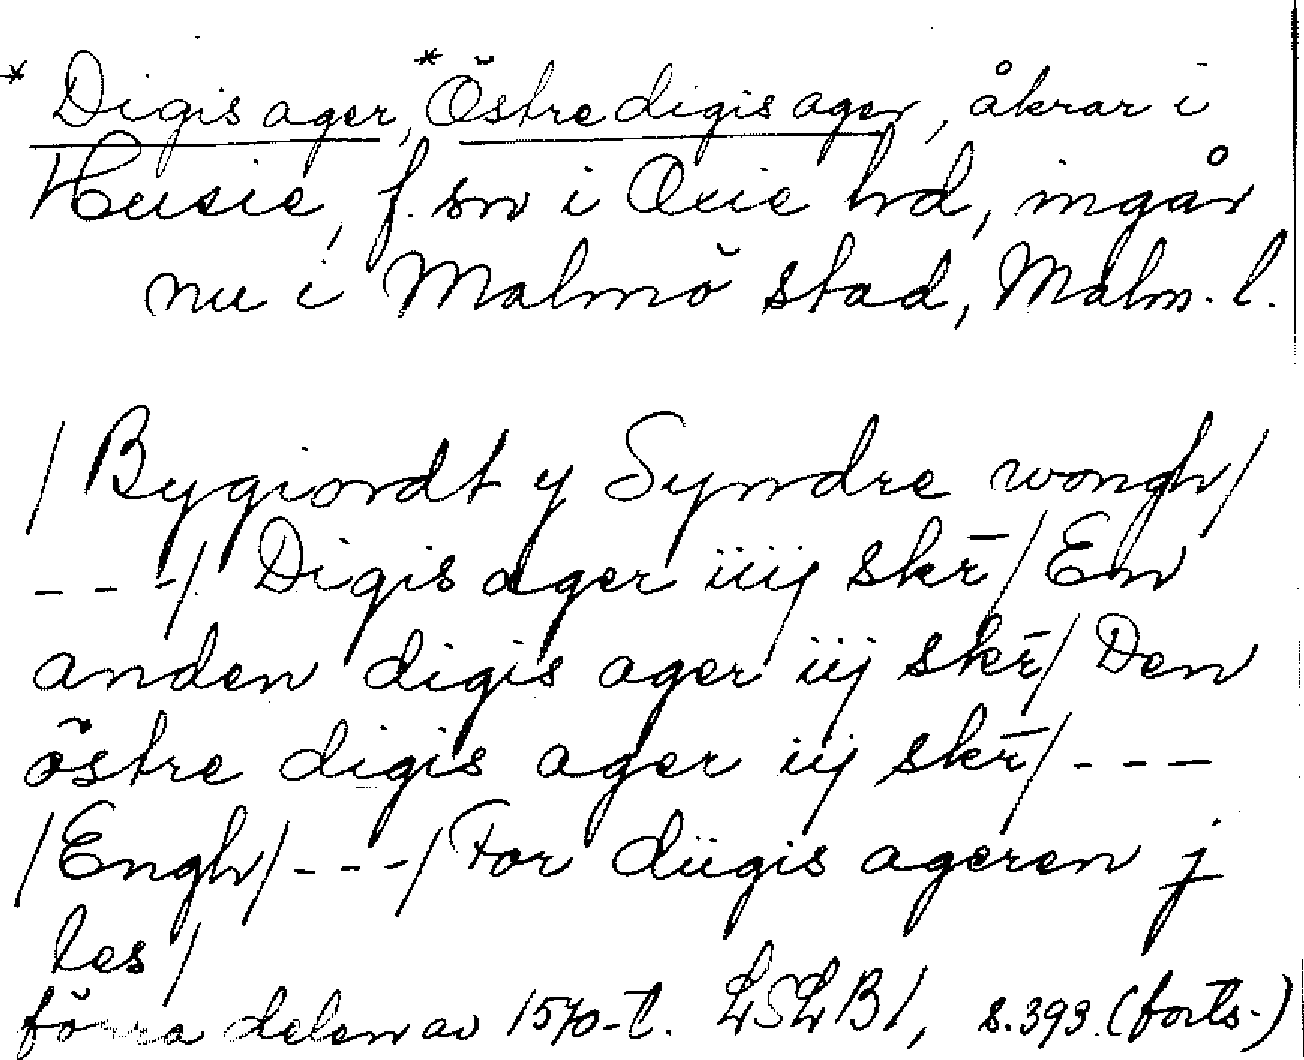 * Digis ager, * Östre digis ager, åkrar i
Husie, f. sn i Oxie hd, ingår
nu i Malmö stad, Malm. l.
/ Bygiordt y Syndre wongh /
- - - /. Digis ager iiij skr̄ / En
anden digis ager iij skr̄ / Den
östre digis ager iij skr̄ / - - -
/ Engh / - - - / For diigis ageren j
les /
förra delen av 1570-t. LSLB1, s. 393. (forts.)